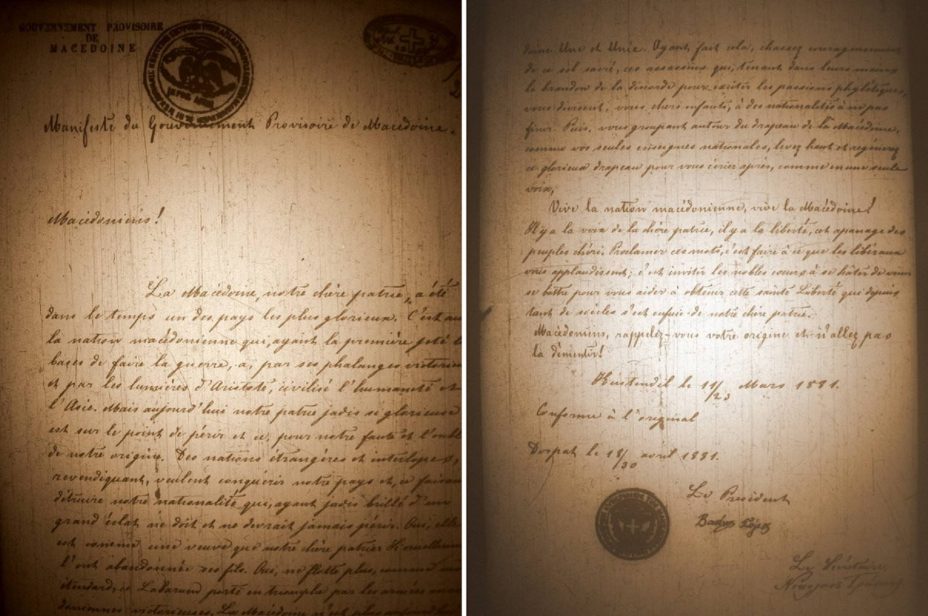 GOUVERNEMENT PROVISOIRE
DE
MACEDOINE
Manifeste du Gouvernement Provisoire de Macedoine.
Macédoniens!
La Macédoine, notre chère patrie, a été
dans le temps un des pays les plus glorieux. C'est
la nation macédonienne qui, ayant la première jeté
bases de faire la guerre, a, par ses phalanges
et par les lumières d'Aristote, civilisé l'humanité et
l'Asie. Mais aujourd'hui notre patrie jadis si glorieuse
est sur le point de périr et ce, pour notre faute et
de notre origine. Des nations étrangères et
revendiquant, veulent conquérir notre pays et, ce faisant
détruire notre nationalité qui, ayant jadis brillé d'un
grand éclat ne doit et ne devrait jamais périr. Oui, elle
est comme une veuve que notre chère patrie!
l'ont abandonnée ses fils. Oui, ne flotte plus, comme
étendard, ce Labarum porté en triomphe par les armées
victorieuses. La Macédoine n'est plus
Une et Unie. Ayant fait cela, chassez courageusement
de ce sol sacré, ces assassins qui, tenant dans leurs mains
le brandon de la discorde pour exciter les passions phylétiques,
vous divisent, vous chers enfants, à des nationalités à ne pas
finir. Puis, vous groupant autour du drapeau de la Macédoine,
comme vos seules enseignes nationales, levez haut et régénérez
ce glorieux drapeau pour vous écrier après, comme en une seule
voix,
Vive la nation macédonienne, vive la Macédoine!
Il y a la voix de la chère patrie, il y a la liberté, cet apanage des
peuples chéri. Proclamer ces mots, c'est faire à ce que les libéraux
vous applaudissent; c'est inviter les nobles cœurs à se hâter de venir
se battre pour vous aider à obtenir cette sainte Liberté qui depuis
tant de siècles s'est enfuie de notre chère patrie.
Macédoniens, rappelez-vous votre origine et n'allez pas
la démentir!
Kustendil le 11/23 Mars 1881.
Conforme à l'original
Dorpat le 18/30 avril 1881.
Le Président
Le Secrétaire,